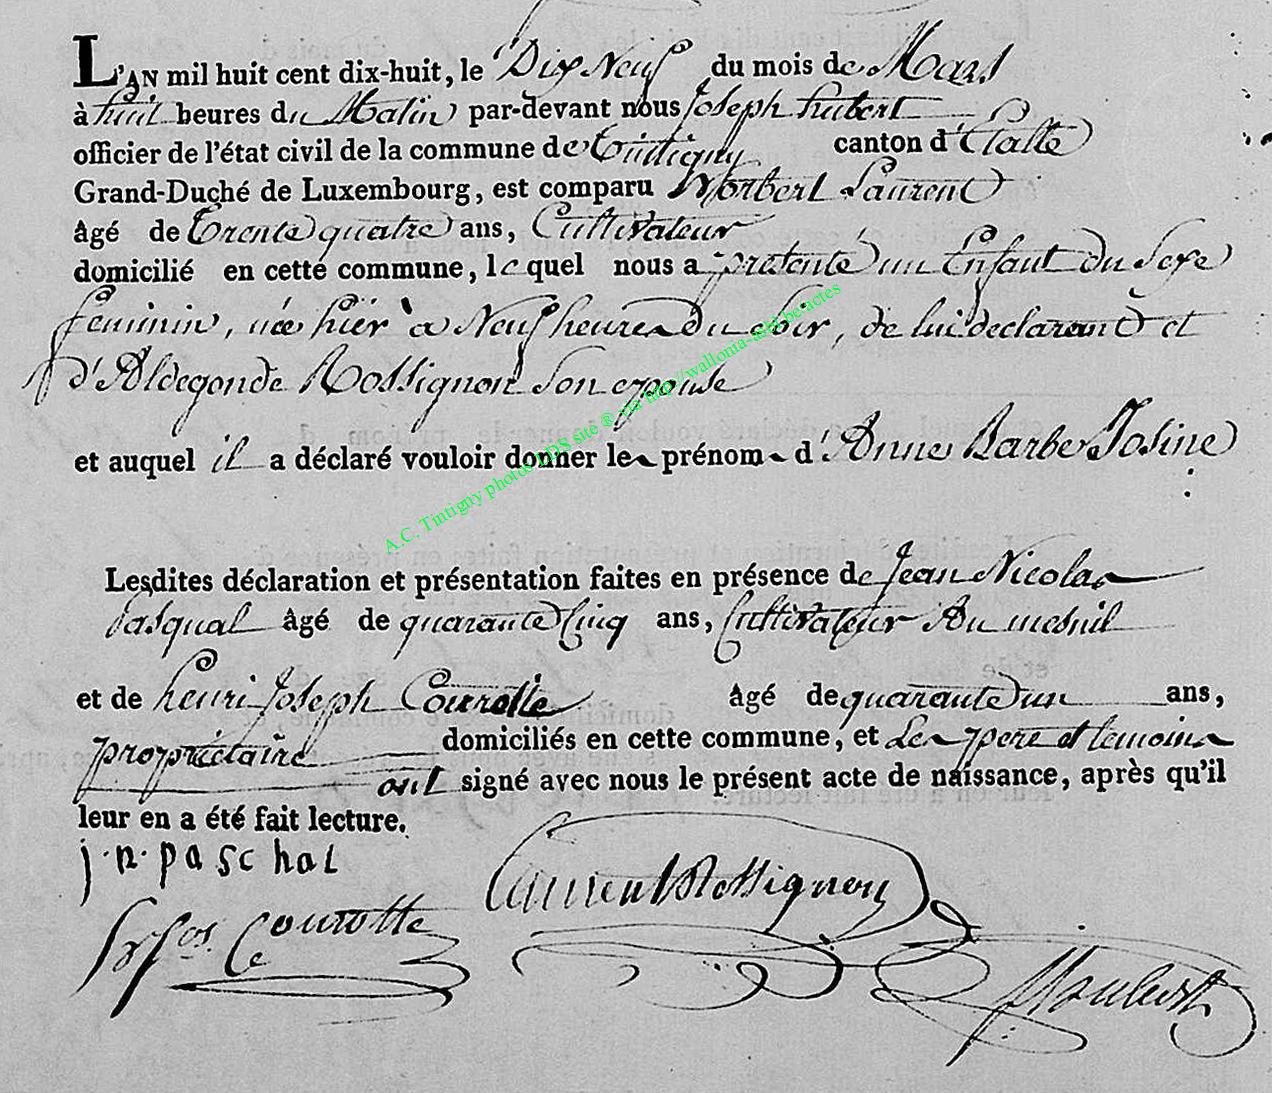 L'AN mil huit cent dix-huit, le Dix Neuf du mois de Mars
à huit heures du Matin par-devant nous Joseph hubert
officier de l'état civil de la commune de Tintigny canton d'Etalle
Grand-Duché de Luxembourg, est comparu Norbert Laurent
âgé de Trente quatre ans, Cultivateur
domicilié en cette commune, le quel nous a présenté un Enfant du Sexe
feminin, née hier à Neuf heures du soir, de lui declarant et
d'Aldegonde Rossignon Son epouse
et auquel il a déclaré vouloir donner les prénoms d'Anne Barbe Josine
Lesdites déclaration et présentation faites en présence de Jean Nicolas
Pasqual âgé de quarante Cinq ans, Cultivateur Au mesnil
et de henri Joseph Courotte âgé de quarante un ans,
propriétaire domiciliés en cette commune, et Les pere et temoins
ont signé avec nous le présent acte de naissance, après qu'il
leur en a été fait lecture.
j.n.paschal
Laurent Rossignon
Courotte
A.C. Tintigny photos LDS site ® via http://wallonia-asbl.be-actes